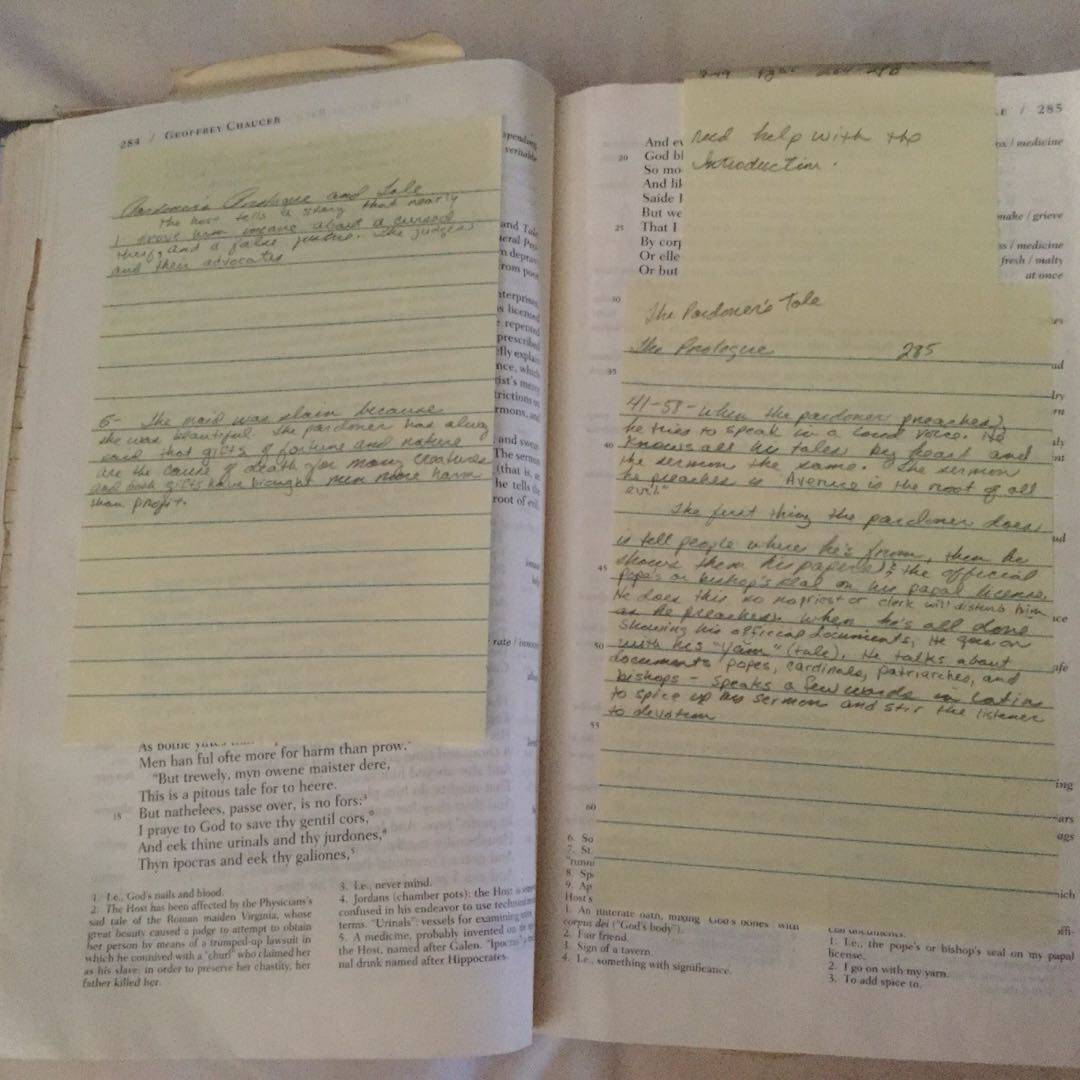 284 / GEOFFREY CHAUCER
spending
veritable
Pardoner's Prologue and Tale
The host tells a story that nearly
drove him insane about a cursed
thief, and a false justice. The judges
and their advocates
and Tale
rom
terprises,
s licensed
repented
prescribed
fly explain
nce, which
ist's mercy
trictions on
rmons, and
6- The maid was slain because
she was beautiful. The pardoner has always
said that gifts of fortune and nature
are the cause of death for many creatures
and both gifts have brought men more harm
than profit.
and swear
The sermon
(that is, as
he tells the
root of evil.
rate /
Men han ful ofte more for harm than prow.°
"But trewely, myn owene maister dere,
This is a pitous tale for to heere.
But nathelees, passe over, is no fors:³
15 I praye to God to save thy gentil cors,°
And eek thine urinals and thy jurdones,⁴
Thyn ipocras and eek thy galiones,⁵
1. I.e., God's nails and blood.
2. The Host has been affected by the Physician's
sad tale of the Roman maiden Virginia, whose
great beauty caused a judge to attempt to obtain
her person by means of a trumped-up lawsuit in
which he connived with a "churl" who claimed her
as his slave; in order to preserve her chastity, her
father killed her.
3. I.e., never mind.
4. Jordans (chamber pots): the Host is
confused in his endeavor to use technical
terms. "Urinals": vessels for examining
5. A medicine, probably invented on
the Host, named after Galen. "Ipocras":
nal drink named after Hippocrates.
/ 285
need help with the
Introduction.
And
20 God bl
So mo
And lik
Saide I
But we
25 That I
By corp
Or elle
Or but
/ medicine
make / grieve
/ medicine
fresh / malty
at once
30
The Pardoner's Tale
The Prologue 285
35
41-58- When the pardoner preaches,
he tries to speak in a loud voice. He
40 knows all his tales by heart and
the sermon the same. The sermon
he preaches is "Avarice is the root of all
evil"
The first thing the pardoner does
is tell people where he's from, then he
45 shows them his papers; the official
Pope's or bishop's seal on his papal license.
He does this so no priest or clerk will disturb him
as he preaches. When he's all done
showing his official documents, he goes on
50 with his "yarn" (tale). He talks about
documents popes, cardinals, patriarches, and
bishops - speaks a few words in Latin
to spice up his sermon and stir the listener
to devotion
55
60
6. So
7. St.
"runni
8. Sp
9. Ap
Host's
1. An illiterate oath, mixing "God's bones" with
corpus dei ("God's body").
2. Fair friend.
3. Sign of a tavern.
4. I.e., something with significance.
1. I.e., the pope's or bishop's seal on my papal
license.
2. I go on with my yarn.
3. To add spice to.